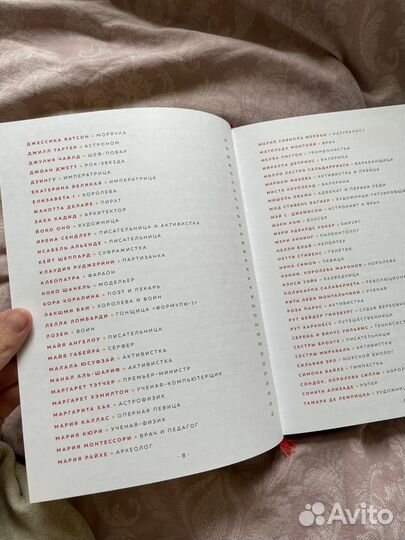 ДЖЕССИКА ВАТСОН • МОРЯЧКА
ДЖИЛЛ ТАРТЕР • АСТРОНОМ
ДЖУЛИЯ ЧАЙЛД • ШЕФ-ПОВАР
ДЖОАН ДЖЕТТ • РОК-ЗВЕЗДА
ДЗИНГУ • ИМПЕРАТРИЦА
ЕКАТЕРИНА ВЕЛИКАЯ • ИМПЕРАТРИЦА
ЕЛИЗАВЕТА I • КОРОЛЕВА
ЖАКОТТА ДЕЛАЙЕ • ПИРАТ
ЗАХА ХАДИД • АРХИТЕКТОР
ЙОКО ОНО • ХУДОЖНИЦА
ИРЕНА СЕНДЛЕР • ПИСАТЕЛЬНИЦА И АКТИВИСТКА
ИСАБЕЛЬ АЛЬЕНДЕ • ПИСАТЕЛЬНИЦА
КЕЙТ ШЕППАРД • СУФРАЖИСТКА
КЛАУДИЯ РУДЖЕРИНИ • ПАРТИЗАНКА
КЛЕОПАТРА • ФАРАОН
КОКО ШАНЕЛЬ • МОДЕЛЬЕР
КОРА КОРАЛИНА • ПОЭТ И ПЕКАРЬ
ЛАКШМИ БАИ • КОРОЛЕВА И ВОИН
ЛЕЛЛА ЛОМБАРДИ • ГОНЩИЦА «ФОРМУЛЫ-1»
ЛОЗЕН • ВОИН
МАЙЯ АНГЕЛОУ • ПИСАТЕЛЬНИЦА
МАЙЯ ГАБЕЙРА • СЕРФЕР
МАЛАЛА ЮСУФЗАЙ • АКТИВИСТКА
МАНАЛ АЛЬ-ШАРИФ • АКТИВИСТКА
МАРГАРЕТ ТЭТЧЕР • ПРЕМЬЕР-МИНИСТР
МАРГАРЕТ ХЭМИЛТОН • УЧЕНАЯ-КОМПЬЮТЕРЩИК
МАРГАРИТА ХАК • АСТРОФИЗИК
МАРИЯ КАЛЛАС • ОПЕРНАЯ ПЕВИЦА
МАРИЯ КЮРИ • УЧЕНАЯ-ФИЗИК
МАРИЯ МОНТЕССОРИ • ВРАЧ И ПЕДАГОГ
МАРИЯ РАЙХЕ • АРХЕОЛОГ
• 8 •
МАРИЯ СИБИЛЛА МЕРИАН • НАТУРАЛИСТ
МАТИЛЬДА МОНТОЙЯ • ВРАЧ
МЕЛБА ЛИСТОН • ТРОМБОНИСТКА
МИКАЭЛА ДЕПРИНС • БАЛЕРИНА
МИЛЛО КАСТРО САЛЬДАРРИАГА • БАРАБАНЩИЦА
МИРИАМ МАКЕБА • АКТИВИСТКА И ПЕВИЦА
МИСТИ КОУПЛЕНД • БАЛЕРИНА
МИШЕЛЬ ОБАМА • АДВОКАТ И ПЕРВАЯ ЛЕДИ
МОД СТИВЕНС ВАГНЕР • ХУДОЖНИЦА-ТАТУИРОВЩИЦА
МЭЙ С. ДЖЕМИСОН • АСТРОНАВТ И ВРАЧ
МЭРИ КОМ • БОКСЕР
МЭРИ ЭДВАРДС УОКЕР • ХИРУРГ
МЭРИ ЭННИНГ • ПАЛЕОНТОЛОГ
НЕЛЛИ БЛАЙ • РЕПОРТЕР
НЕТТИ СТИВЕНС • ГЕНЕТИК
НИНА СИМОН • ПЕВИЦА
НЭННИ, КОРОЛЕВА МАРОНОВ • КОРОЛЕВА
НЭНСИ УЭЙК • РАЗВЕДЧИЦА
ПОЛИКАРПА САЛАВАРРИЕТА • РЕВОЛЮЦИОН
РИТА ЛЕВИ МОНТАЛЬЧИНИ • УЧЕНАЯ
РОЗА ПАРКС • АКТИВИСТКА
РУТ БЕЙДЕР ГИНЗБУРГ • СУДЬЯ ВЕРХОВН
РУТ ХАРКНЕСС • ПУТЕШЕСТВЕННИЦА
СЕРЕНА И ВИНУС УИЛЬЯМС • ТЕННИСИСТ
СЕСТРЫ БРОНТЕ • ПИСАТЕЛЬНИЦЫ
СЕСТРЫ МИРАБАЛЬ • АКТИВИСТКИ
СИЛЬВИЯ ЭРЛ • МОРСКОЙ БИОЛОГ
СИМОНА БАЙЛЗ • ГИМНАСТКА
СОНДОК, КОРОЛЕВА СИЛЛЫ • КОРОЛЕВА
СОНИТА АЛИЗАДЕ • РЭПЕР
ТАМАРА ДЕ ЛЕМПИЦКА • ХУДОЖНИЦА
Avito